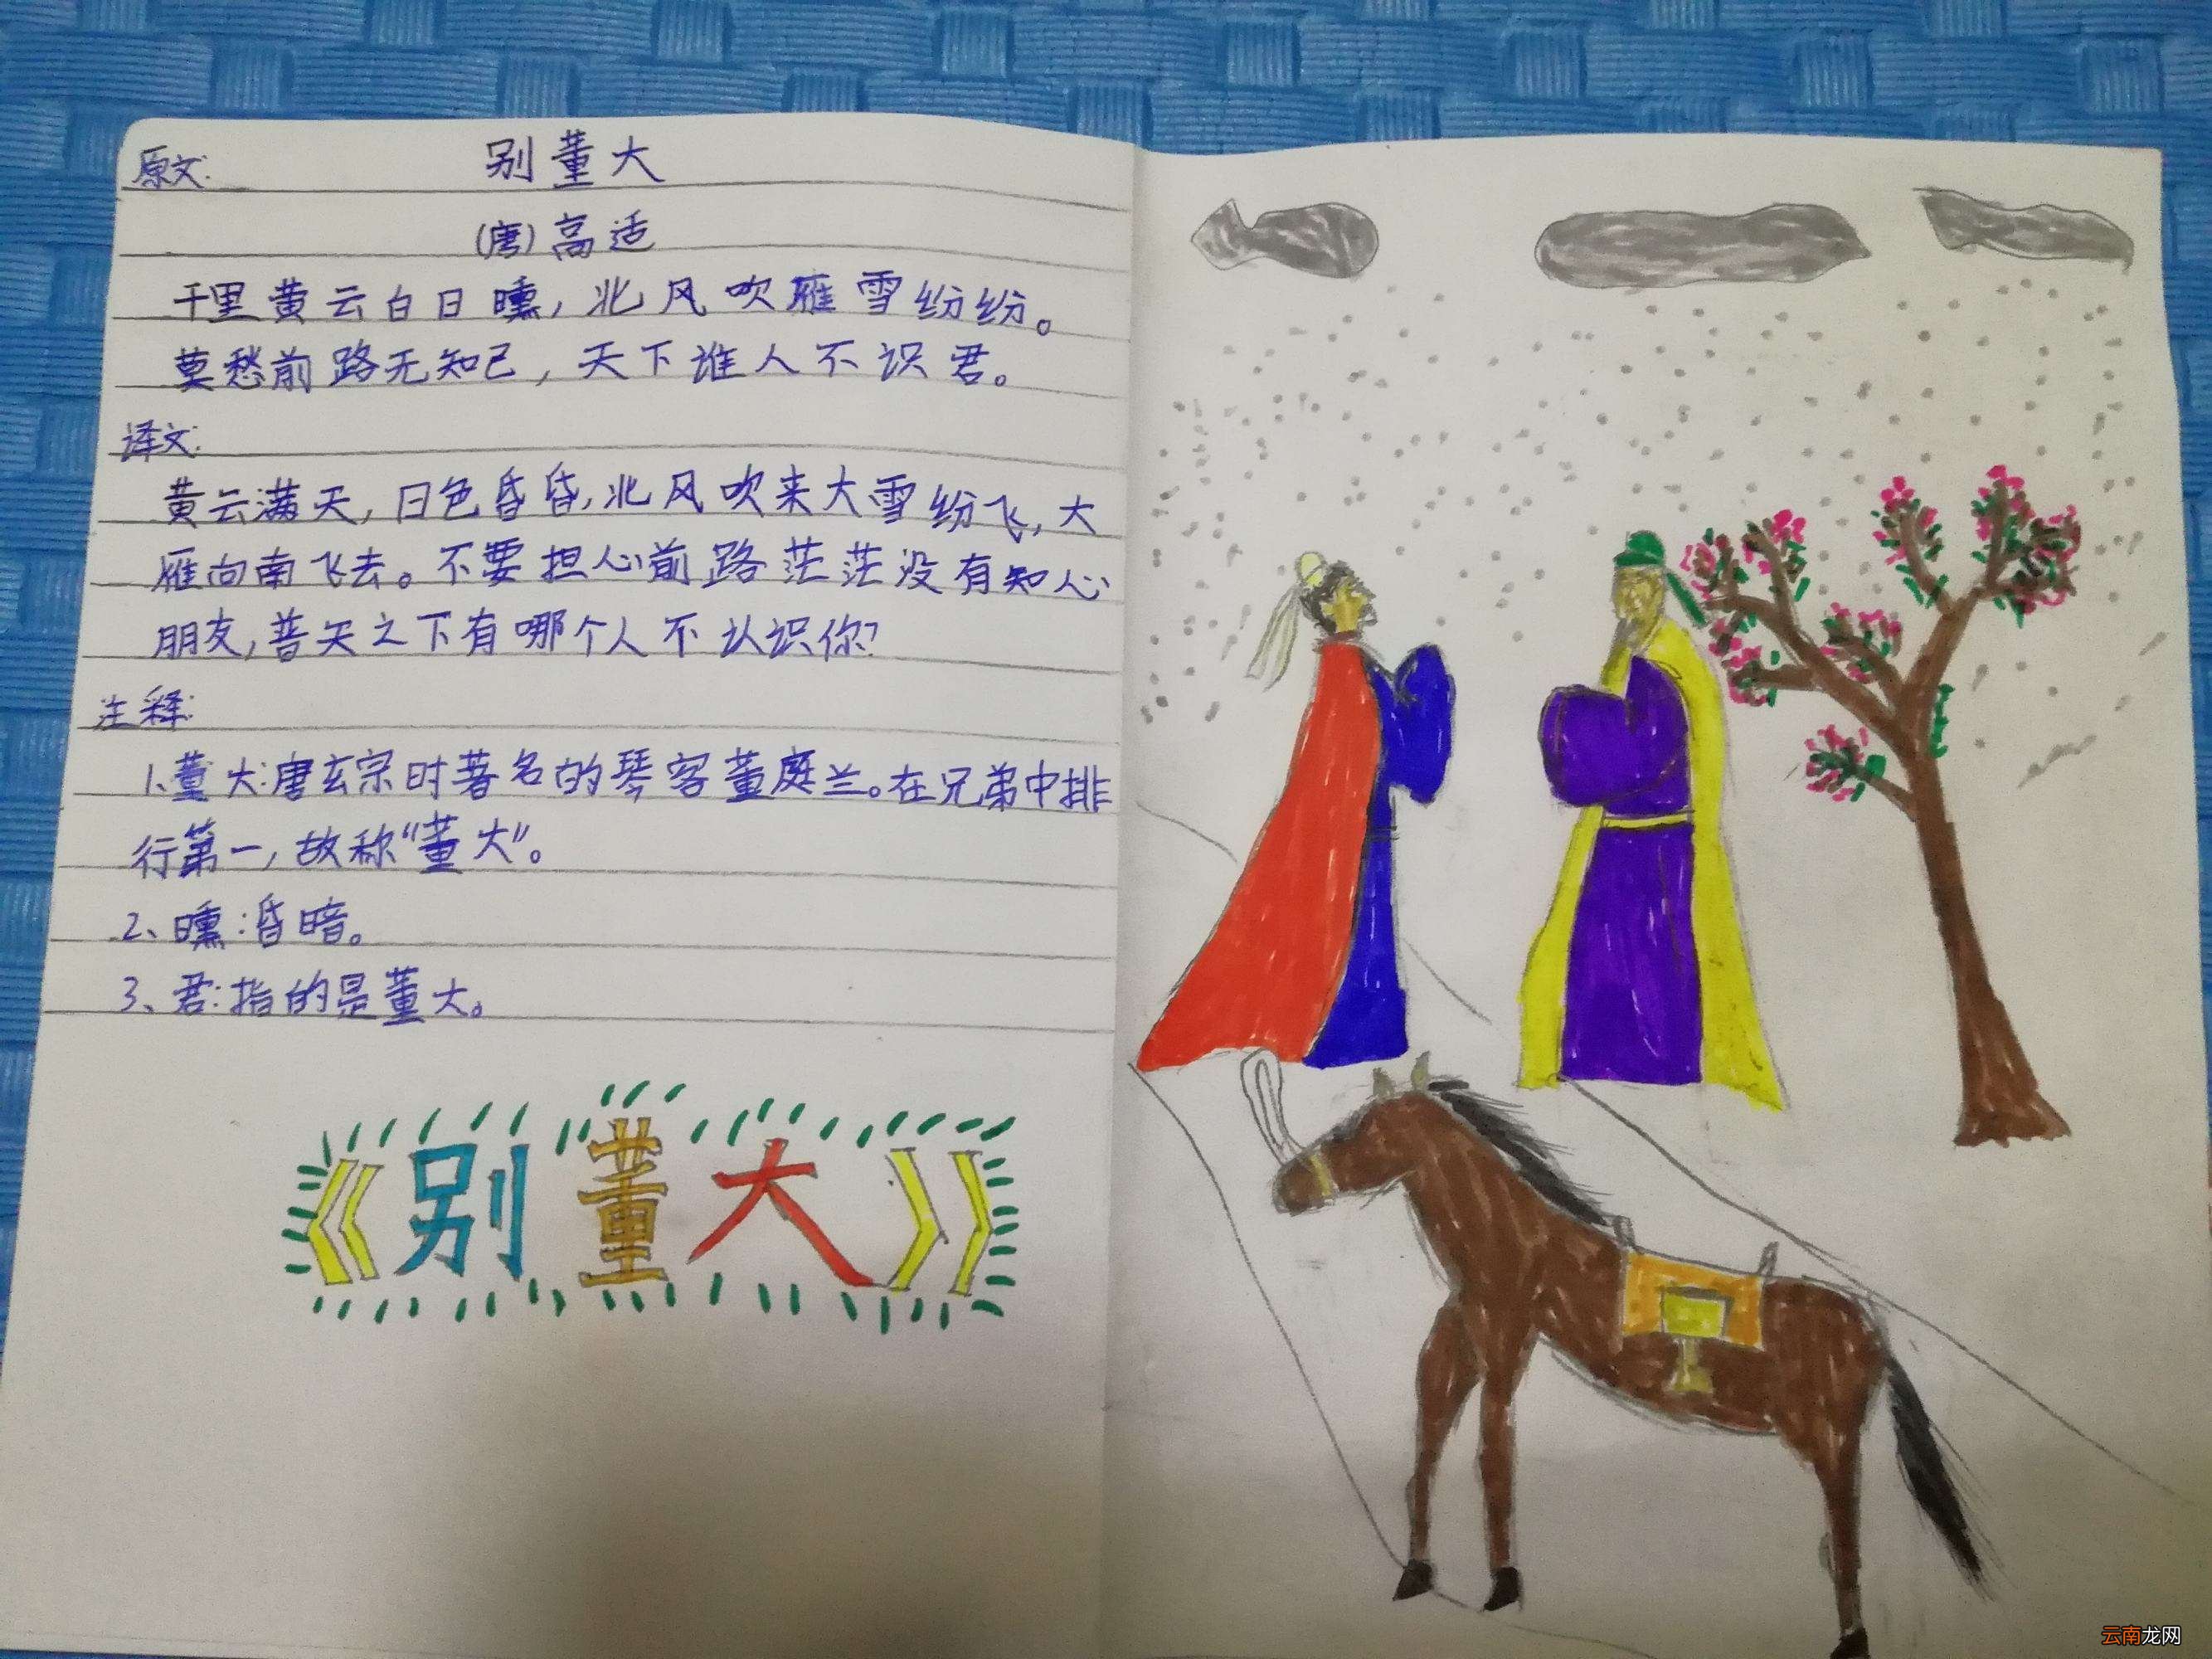 原文: 别董大
(唐)高适
千里黄云白日曛,北风吹雁雪纷纷。
莫愁前路无知己,天下谁人不识君。
译文:
黄云满天,日色昏昏,北风吹来大雪纷飞,大
雁向南飞去。不要担心前路茫茫没有知心
朋友,普天之下有哪个人不认识你?
注释:
1、董大:唐玄宗时著名的琴客董庭兰。在兄弟中排
行第一,故称“董大”。
2、曛:昏暗。
3、君:指的是董大。
《别董大》
云南龙网